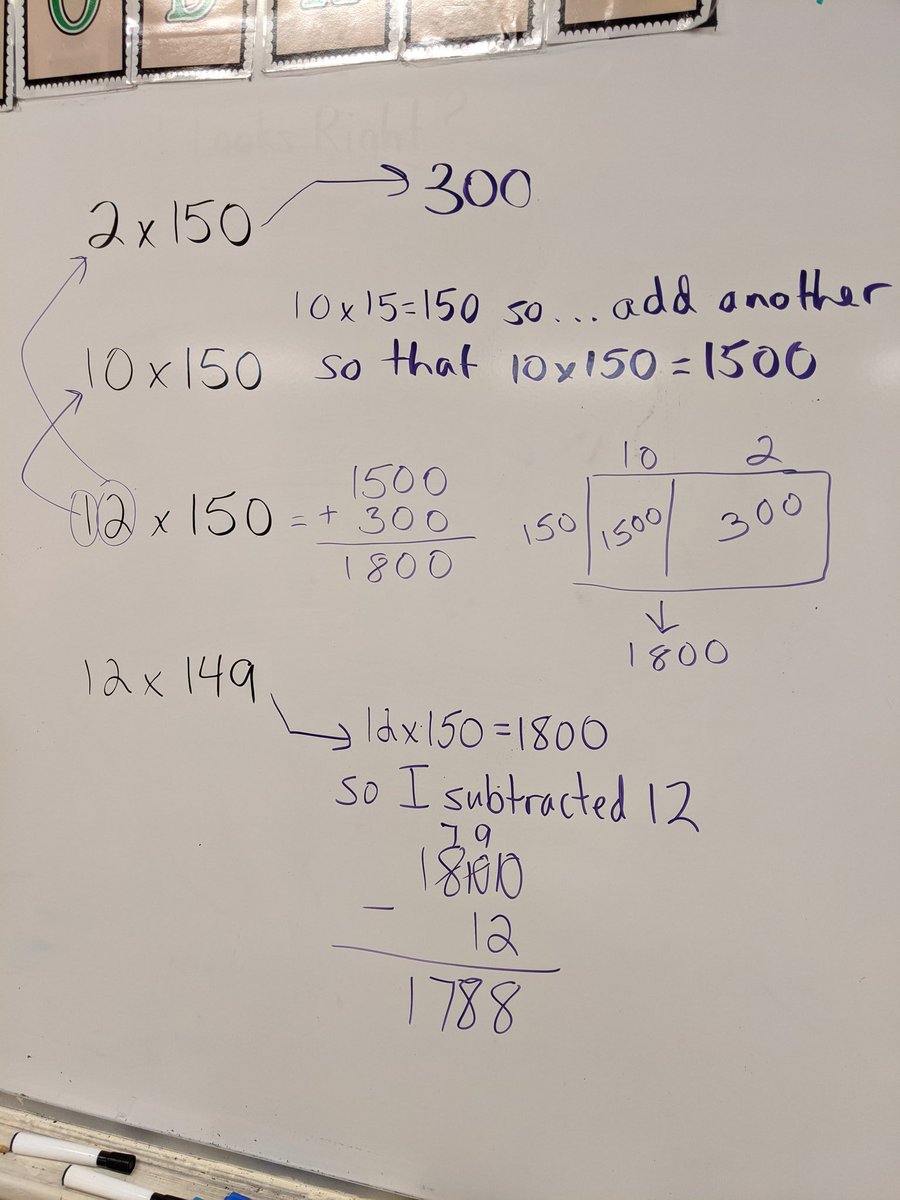 Looks Right?
2 x 150 → 300
10 x 15 = 150 so... add another
10 x 150 so that 10 x 150 = 1500
12 x 150 =
1500
+ 300
1800
10 2
150 1500 300
↓
1800
12 x 149
→ 12 x 150 = 1800
so I subtracted 12
7 9
18100
- 12
1788